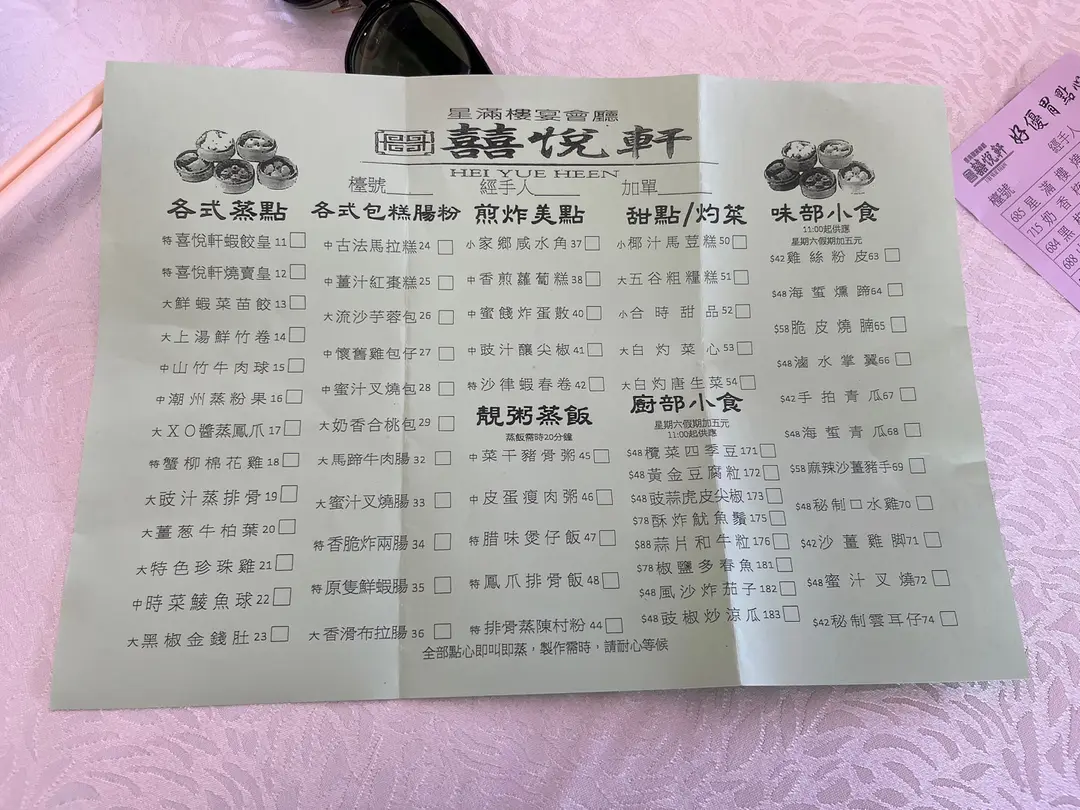 星滿樓宴會廳
囍悅軒
HEI YUE HEEN
檯號____ 經手人____ 加單____
各式蒸點
特喜悅軒蝦餃皇11
特喜悅軒燒賣皇12
大鮮蝦菜苗餃13
大上湯鮮竹卷14
中山竹牛肉球15
中潮州蒸粉果16
大XO醬蒸鳳爪17
特蟹柳棉花雞18
大豉汁蒸排骨19
大薑葱牛柏葉20
大特色珍珠雞21
中時菜鯪魚球22
大黑椒金錢肚23
各式包糕腸粉
中古法馬拉糕24
中薑汁紅棗糕25
大流沙芋蓉包26
中懷舊雞包仔27
中蜜汁叉燒包28
大奶香合桃包29
大馬蹄牛肉腸32
大蜜汁叉燒腸33
特香脆炸兩腸34
特原隻鮮蝦腸35
大香滑布拉腸36
煎炸美點
小家鄉咸水角37
中香煎蘿蔔糕38
中蜜餞炸蛋散40
中豉汁釀尖椒41
特沙律蝦春卷42
靚粥蒸飯
蒸飯需時20分鐘
中菜干豬骨粥45
中皮蛋瘦肉粥46
特腊味煲仔飯47
特鳳爪排骨飯48
特排骨蒸陳村粉44
甜點/灼菜
小椰汁馬荳糕50
大五谷粗糧糕51
小合時甜品52
大白灼菜心53
大白灼唐生菜54
廚部小食
星期六假期加五元
11:00起供應
$48欖菜四季豆171
$48黃金豆腐粒172
$48豉蒜虎皮尖椒173
$78酥炸魷魚鬚175
$88蒜片和牛粒176
$78椒鹽多春魚181
$48風沙炸茄子182
$48豉椒炒涼瓜183
味部小食
11:00起供應
星期六假期加五元
$42雞絲粉皮63
$48海蜇燻蹄64
$58脆皮燒腩65
$48滷水掌翼66
$42手拍青瓜67
$48海蜇青瓜68
$58麻辣沙薑豬手69
$48秘制口水雞70
$42沙薑雞脚71
$48蜜汁叉燒72
$42秘制雲耳仔74
全部點心即叫即蒸，製作需時，請耐心等候
囍悅軒
好優胃點
檯號
經手人
685星滿樓
715奶香
684黑